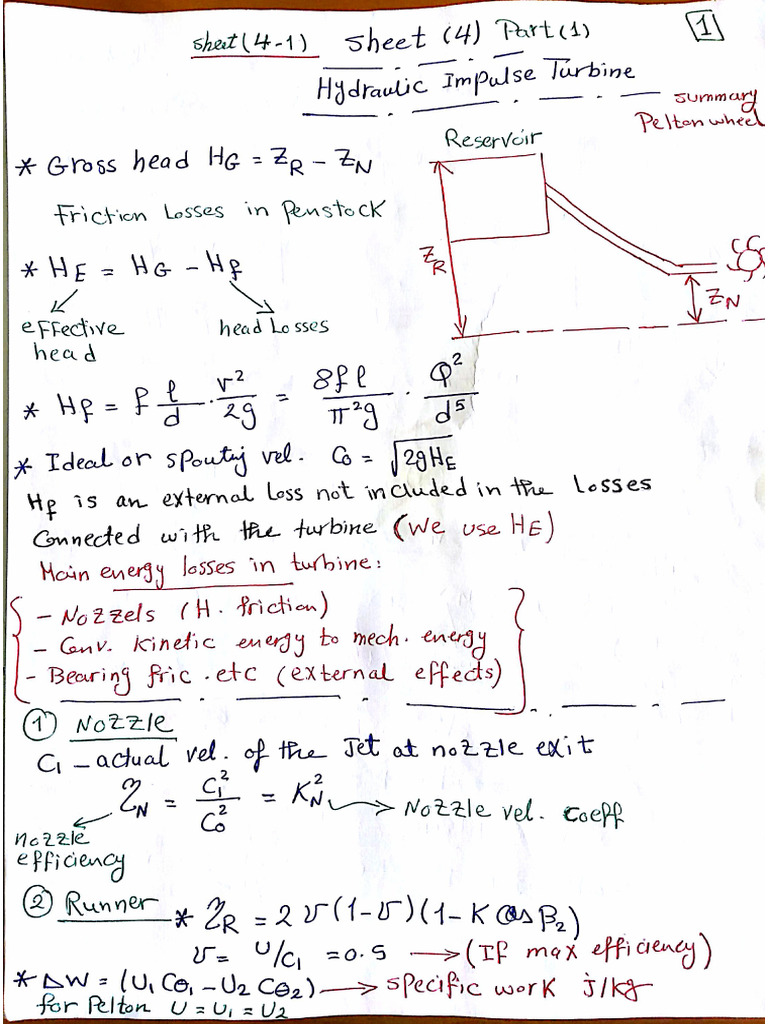 sheet(4-1) Sheet (4) Part(1) 1
Hydraulic Impulse Turbine
summary
Pelton wheel
Reservoir
* Gross head HG = ZR - ZN
Friction Losses in Penstock
ZR
* HE = HG - Hf
ZN
effective head Losses
head
* Hf = f l/d · v²/2g = 8fl/π²g · Q²/d⁵
* Ideal or spoutij vel. Co = √2gHE
Hf is an external Loss not included in the Losses
Connected with the turbine (We use HE)
Main energy losses in turbine:
- Nozzels (H. friction)
- Conv. Kinetic energy to mech. energy
- Bearing fric. etc (external effects)
① Nozzle
C1 - actual vel. of the Jet at nozzle exit
ηN = C1²/Co² = KN² → Nozzle vel. coeff
nozzle
efficiency
② Runner * ηR = 2 υ(1-υ)(1-K Cos β2)
υ = U/C1 = 0.5 → (If max efficiency)
* ΔW = (U1 Cθ1 - U2 Cθ2) → specific work j/kg
for Pelton U = U1 = U2